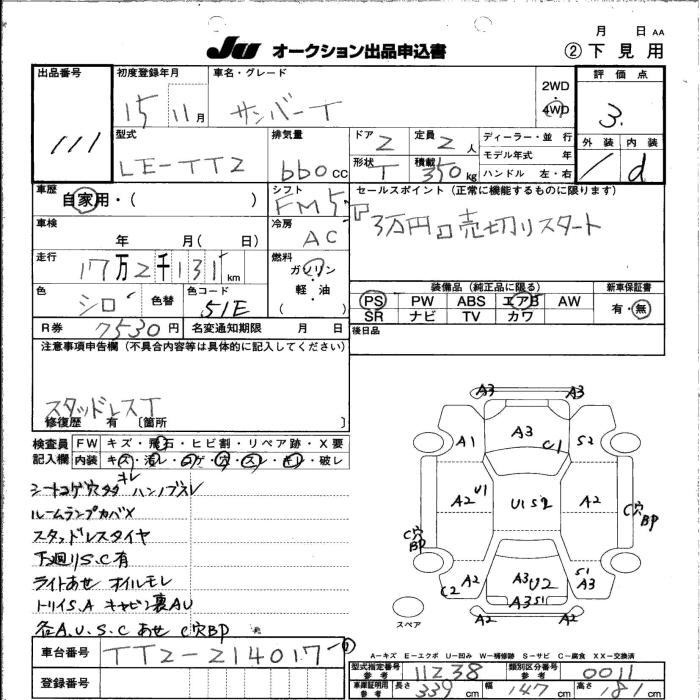 月 日 AA
JU オークション出品申込書 ②下見用
出品番号 初度登録年月 車名・グレード 2WD 評価点
111 15 11月 サンバーT 4WD 3.
型式 排気量 ドア 定員 ディーラー・並行 外装 内装
LE-TT2 660cc 2 2人 モデル年式 年
形状 積載 ハンドル 左・右
T 350kg d
車歴 自家用・( ) シフト セールスポイント(正常に機能するものに限ります)
FM5
車検 冷房 3万円 売切りスタート
年 月( 日) AC
走行 燃料
17万2千131km ガソリン
軽・油
( )
装備品(純正品に限る) 新車保証書
色 シロ 色替 色コード 51E
PS PW ABS エアB AW 有・無
SR ナビ TV カワ
R券 7530円 名変通知期限 月 日 後日品
注意事項申告欄(不具合内容等は具体的に記入してください)
スタッドレスT
修復歴 有 〔箇所 〕
検査員記入欄 FW キズ・飛石・ヒビ割・リペア跡・X要
内装 キズ・汚レ・コゲ・穴・スレ・キレ・破レ
キレ
シートコゲ穴タダ ハンノブスレ
ルームランプカバX
スタッドレスタイヤ
下廻りS.C有
ライトあせ オイルモレ
トリイS.A キャビン裏AU
各A.U.S.C あせ C穴BP
A3 A3
A1 A3 C1 S2
A2 U1 U1 S2 A2
C穴BP C穴BP
C2 A2 A3 U2 S1 A3
A3S1
A2 A2
スペア
A-キズ E-エクボ U-凹み W-補修跡 S-サビ C-腐食 XX-交換済
車台番号 TT2-214017
型式指定番号 参考 11238 類別区分番号 参考 0011
登録番号
車庫証明用 参考 長さ 339cm 幅 147cm 高さ 181cm